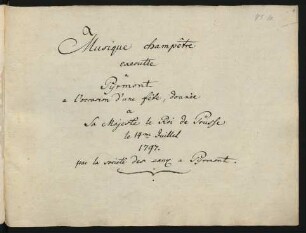 Musique champêtre
executée
a
Pyrmont
a l'occasion d'une fête, donnée
à
Sa Majesté le Roi de Prusse
le 14me Juillet
1797.
par la societé des eaux a Pyrmont.